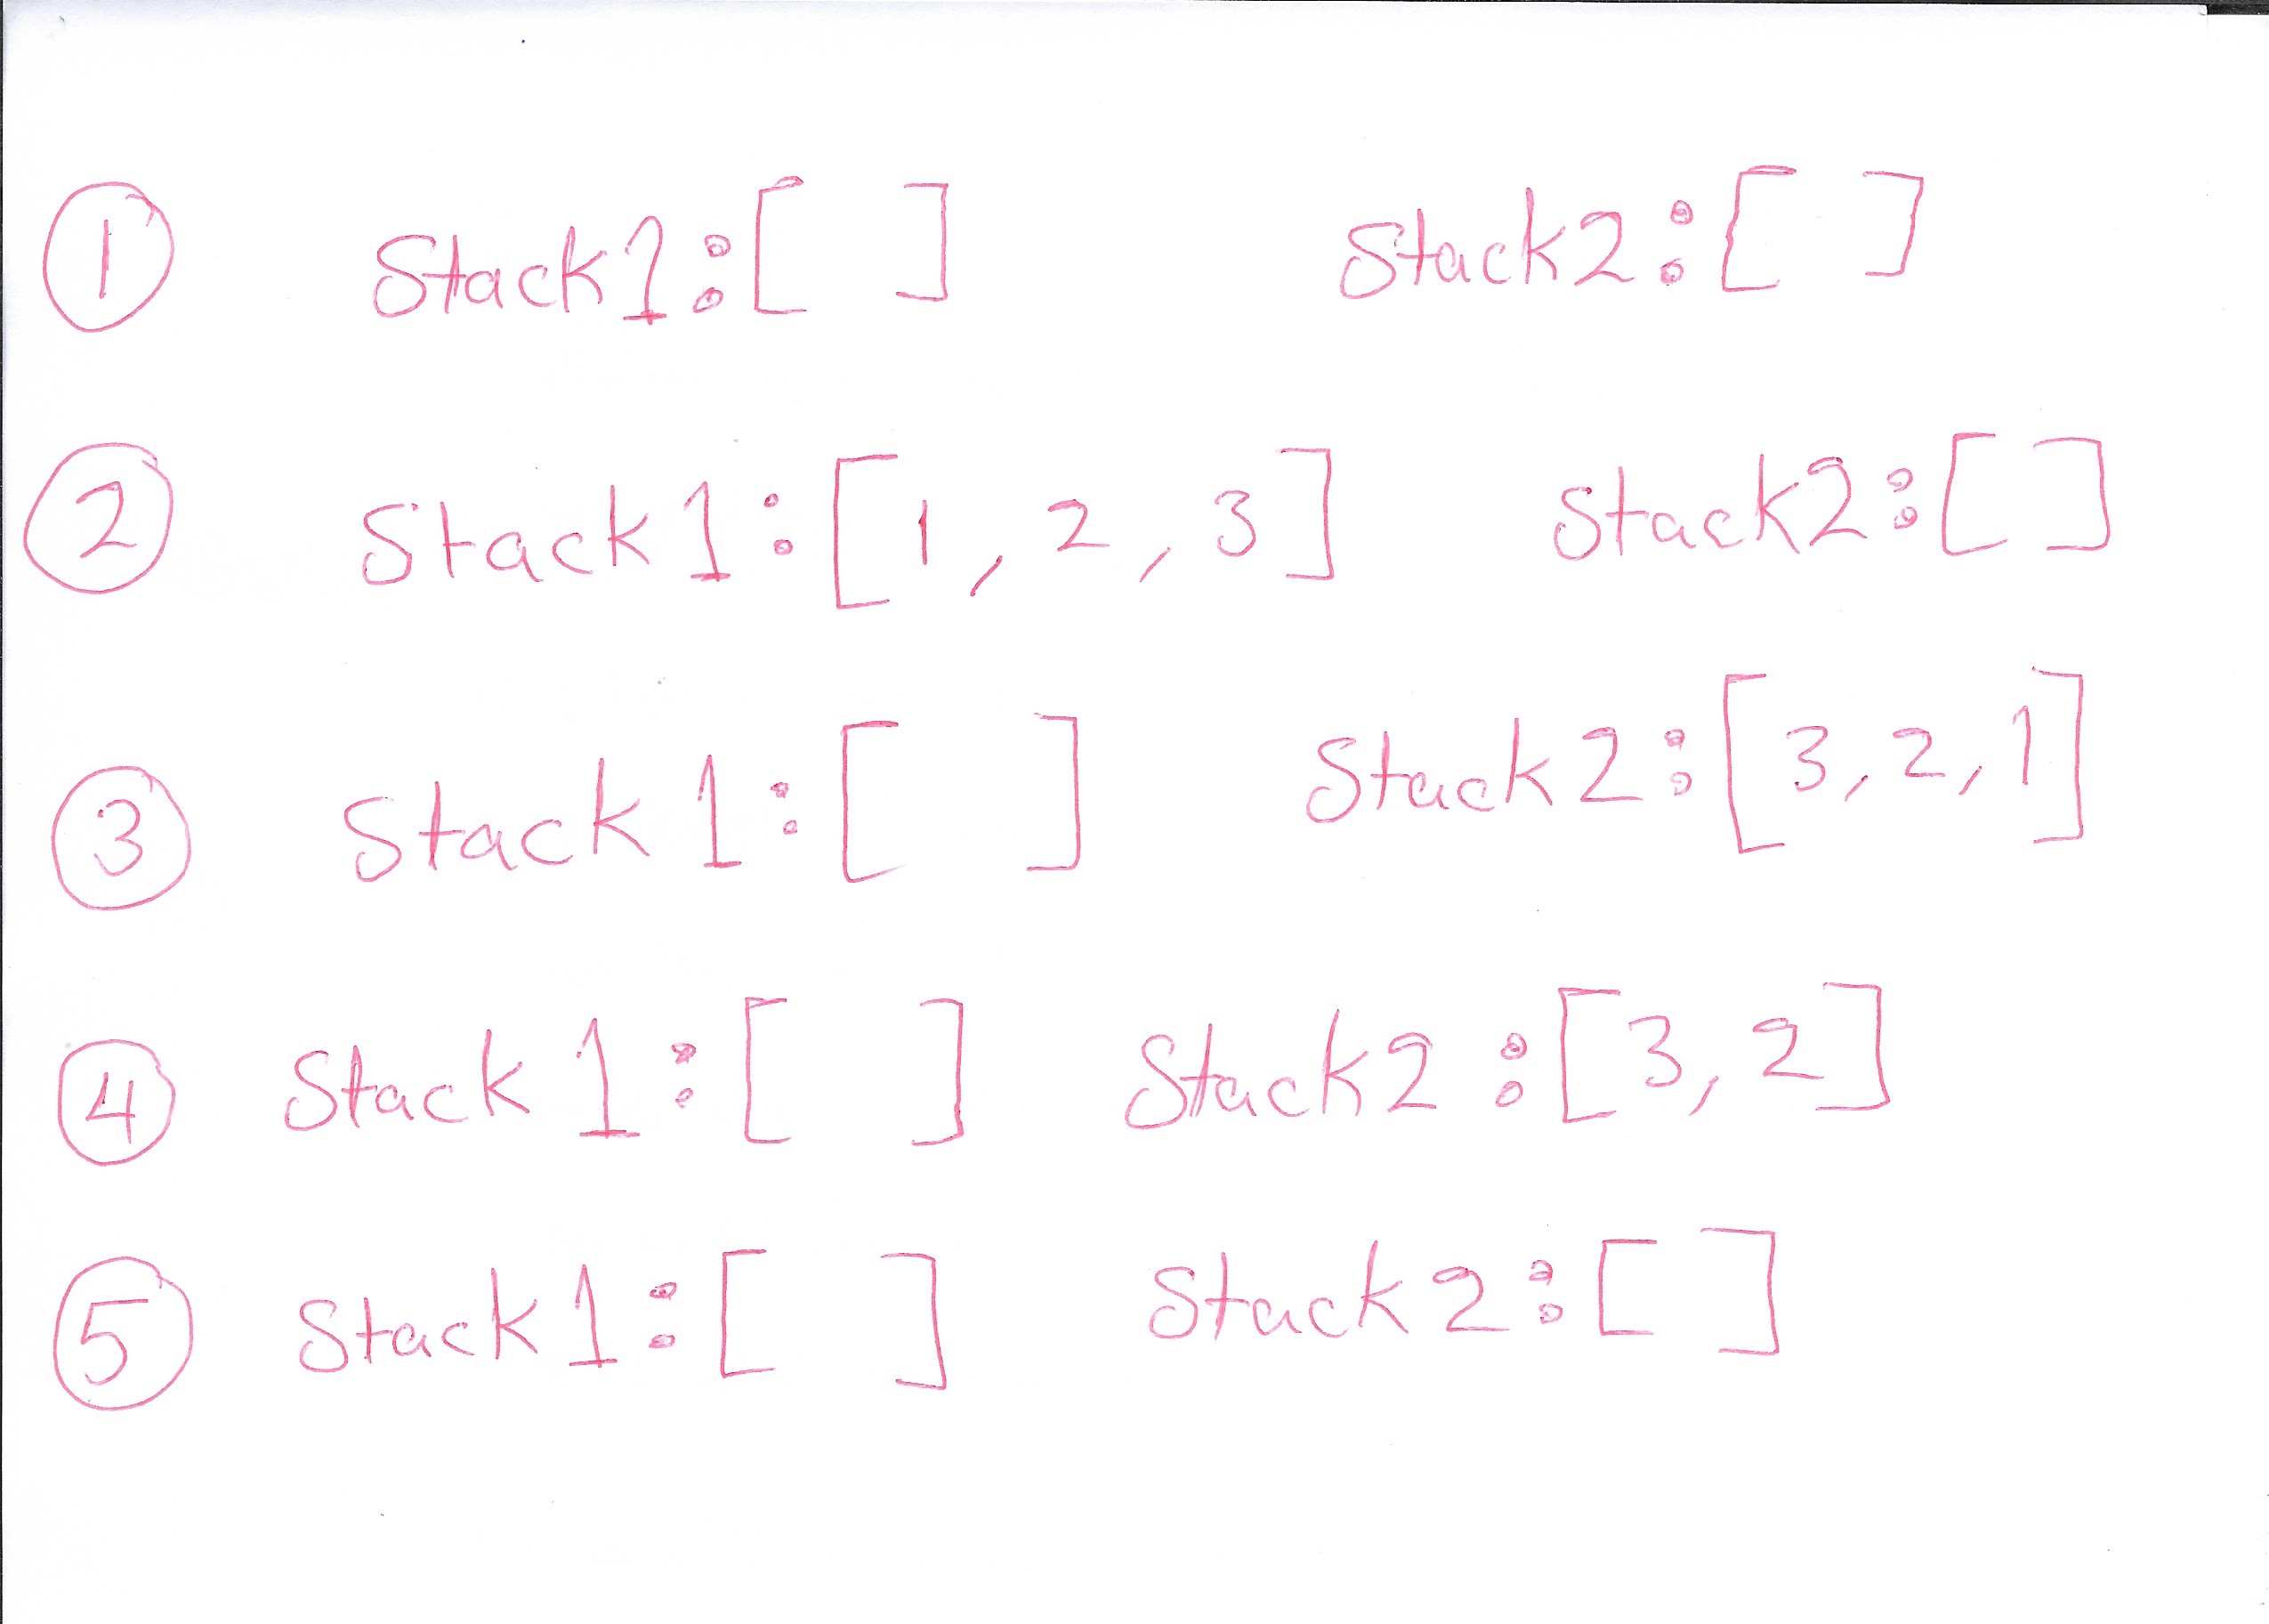 ① Stack1:[ ] Stack2:[ ]
② Stack1:[1, 2, 3] Stack2:[ ]
③ Stack1:[ ] Stack2:[3, 2, 1]
④ Stack1:[ ] Stack2:[3, 2]
⑤ Stack1:[ ] Stack2:[ ]